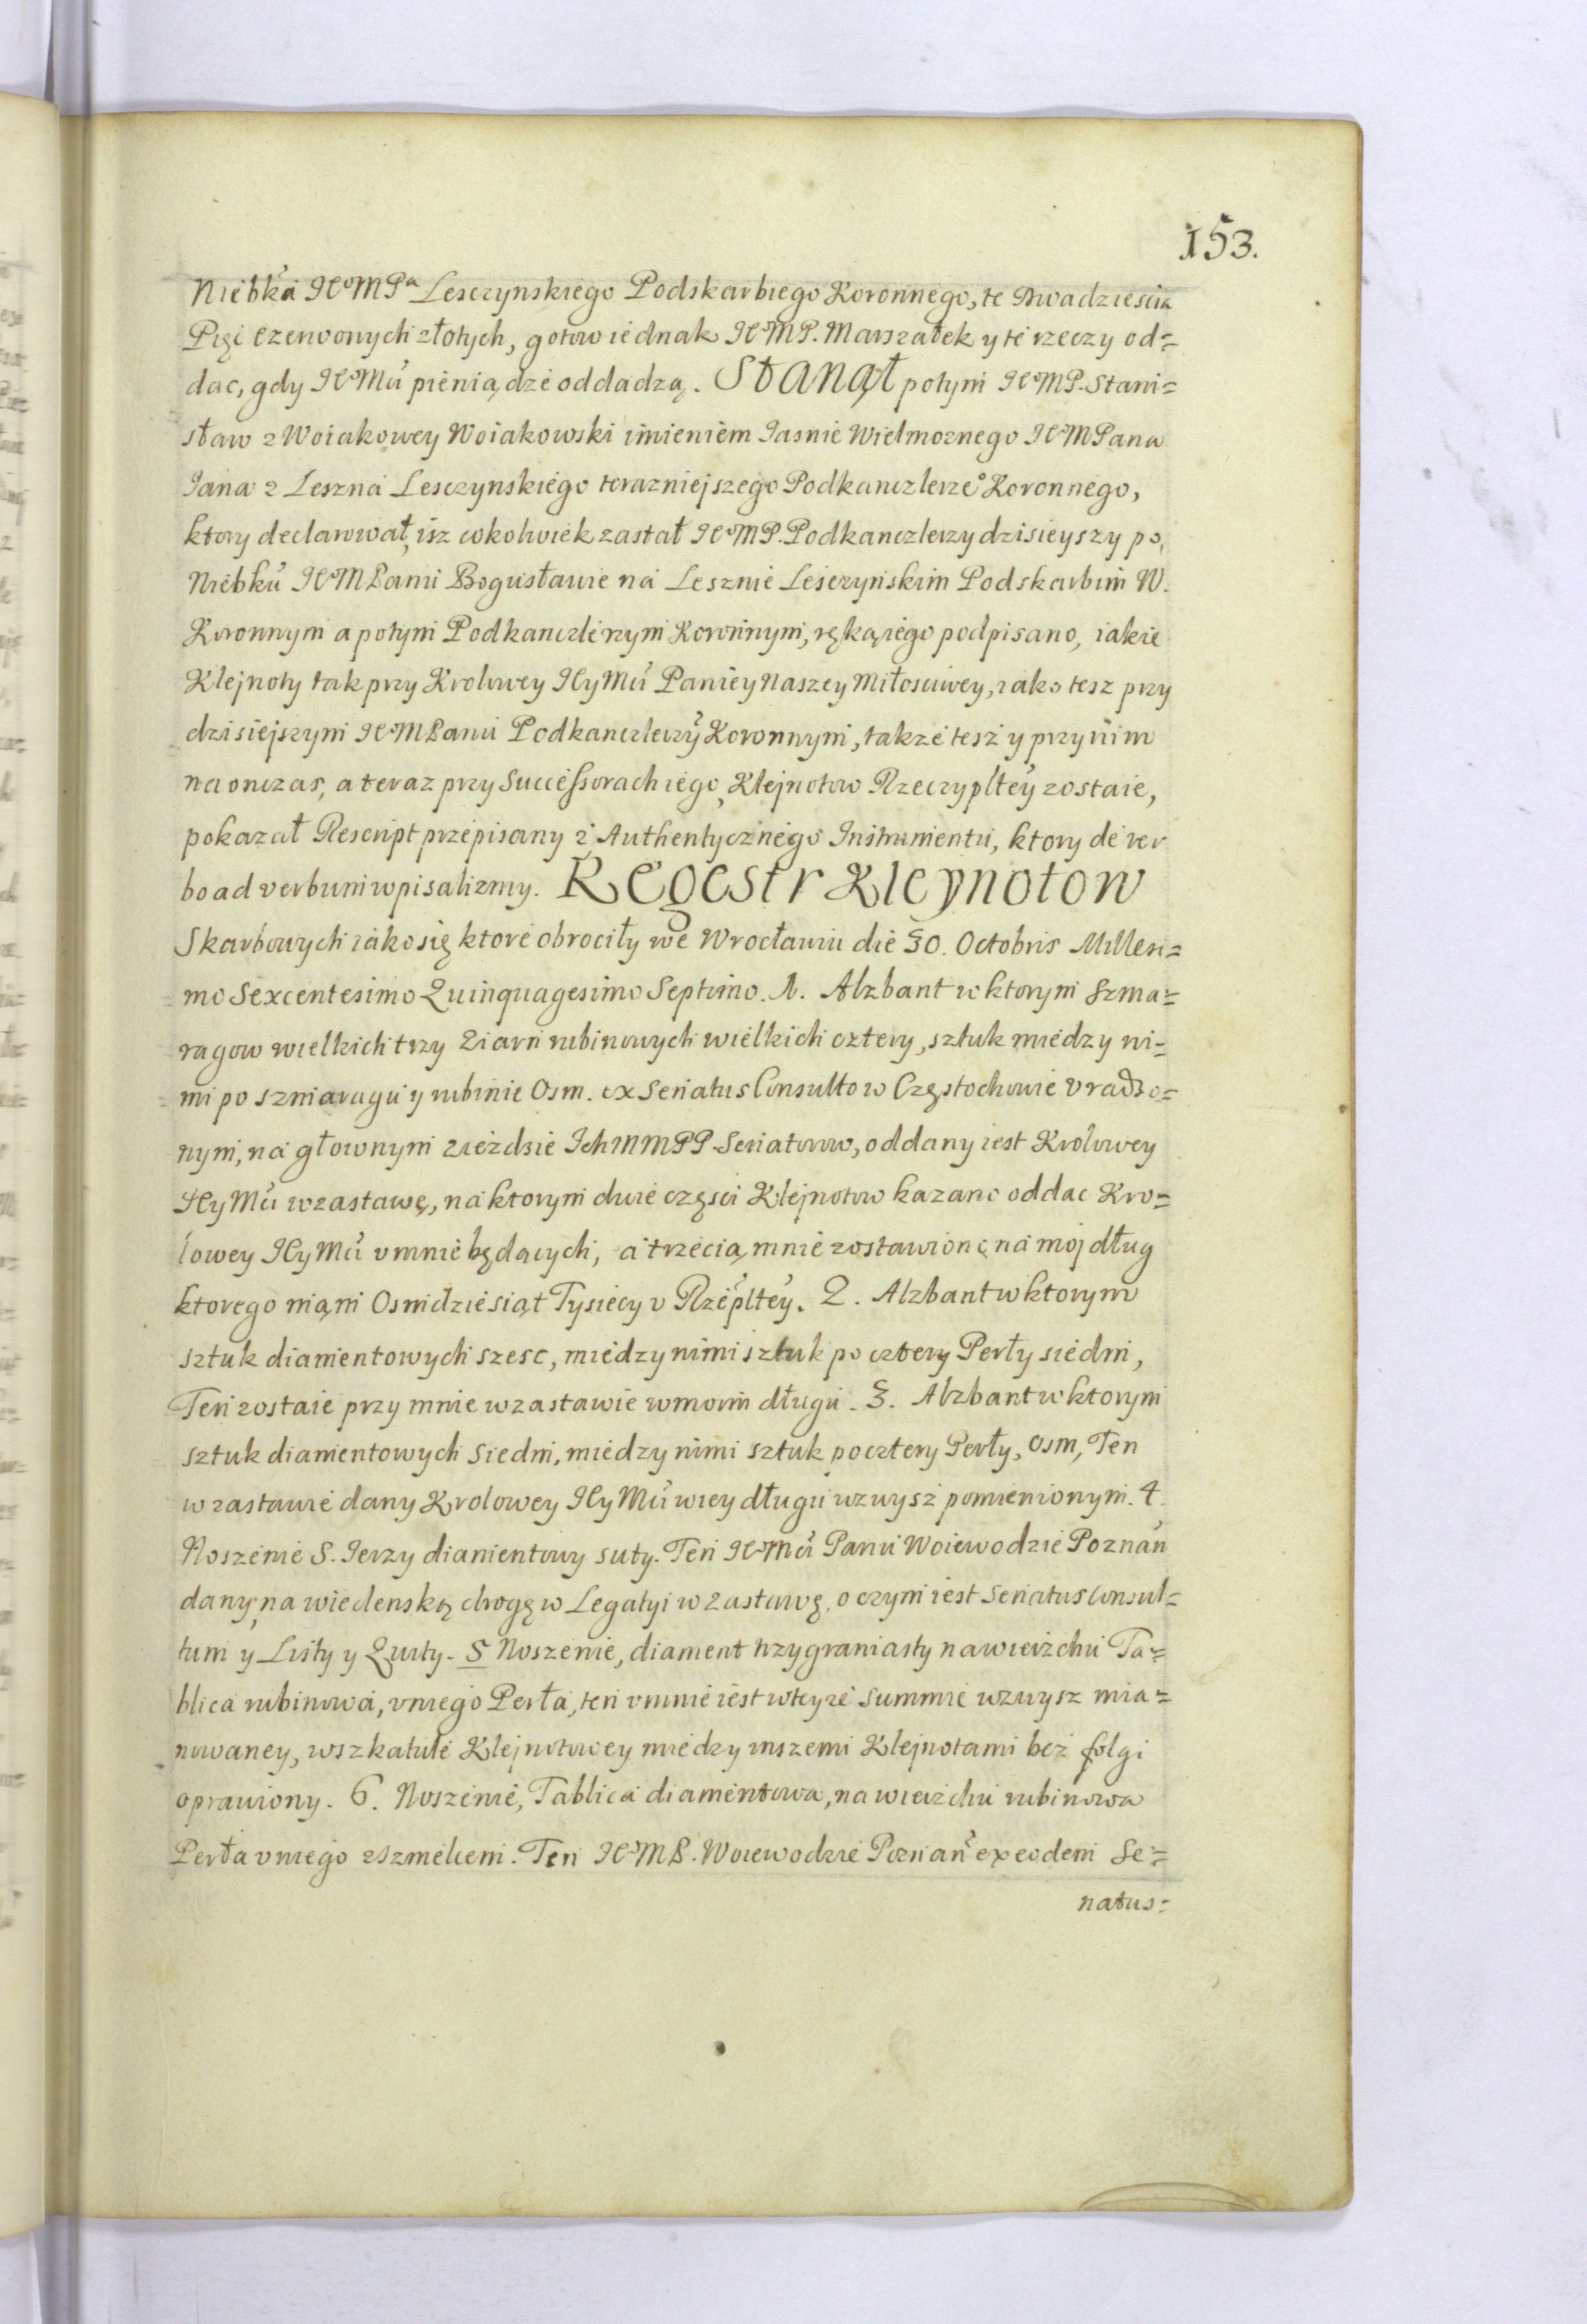 153.
Niebka JeoMPa Lesczynskiego Podskarbiego Koronnego, te Dwadziescia
Pięć czerwonych złotych, gotow iednak JeoMP. Marszałek y te rzeczy od=
dac, gdy JeoMu pieniądze oddadzą. Stanął potym JeoMP. Stani=
sław z Woiakowey Woiakowski imieniem Jasnie Wielmoznego JeoMPana
Jana z Leszna Lesczynskiego terazniejszego Podkanczlerzeo Koronnego,
ktory declarował, isz cokolwiek zastał JeoMP. Podkanczlerzy dzisieyszy po
Niebku JeoMPanu Bogusławie na Lesznie Lesczynskim Podskarbim W.
Koronnym a potym Podkanczlerzym Koronnym, ręką iego podpisano, iakie
Klejnoty tak przy Krolowey JeyMci Paniey Naszey Miłosciwey, iako tesz przy
dzisiejszym JeoMPanu Podkanczlerzy Koronnym, takze tesz y przy nim
na onczas, a teraz przy Successorach iego, Klejnotow Rzeczypltey zostaie,
pokazał Rescript przepisany z Authentycznego Instrumentu, ktory de ver
bo ad verbum wpisalizmy. Regestr Kleynotow
Skarbowych iako się ktore obrociły we Wrocławiu die 30. Octobris Millesi=
mo Sexcentesimo Quinquagesimo Septimo. 1. Alzbant w ktorym szma=
ragow wielkich trzy Ziarn rubinowych wielkich cztery, sztuk miedzy ni=
mi po szmaragu y rubinie Osm. ex Senatus Consulto w Częstochowie vradzo=
nym, na głownym zieżdzie Ich MMPP. Senatorow, oddany iest Krolowey
JeyMci w zastawę, na ktorym dwie części Klejnotow kazano oddac Kro=
lowey JeyMci v mnie będących, a trzecią mnie zostawiono na moj dług
ktorego mąm Osmdziesiąt Tysiecy v Rzepltey. 2. Alzbant w ktorym
sztuk diamentowych szesc, miedzy nimi sztuk po cztery Perły siedm,
Ten zostaie przy mnie w zastawie w moim długu. 3. Alzbant w ktorym
sztuk diamentowych siedm, miedzy nimi sztuk po cztery Perły, osm, Ten
w zastawie dany Krolowey JeyMci w iey długu wzwysz pomienionym. 4.
Noszenie S. Jerzy diamentowy suty. Ten JeoMci Panu Woiewodzie Poznan
dany, na wiedenską drogę w Legatyi w Zastawę, o czym iest Senatus Consul=
tum y Listy y Quity. 5 Noszenie, diament trzygraniasty na wierzchu Ta=
blica rubinowa, v niego Perła, ten v mnie iest w teyze Summie wzwysz mia=
nowaney, w szkatule Klejnotowey miedzy inszemi Klejnotami bez folgi
oprawiony. 6. Noszenie, Tablica diamentowa, na wierzchu rubinowa
Perła v niego z szmelcem. Ten JeoMP. Woiewodzie Poznan ex eodem Se=
natus=